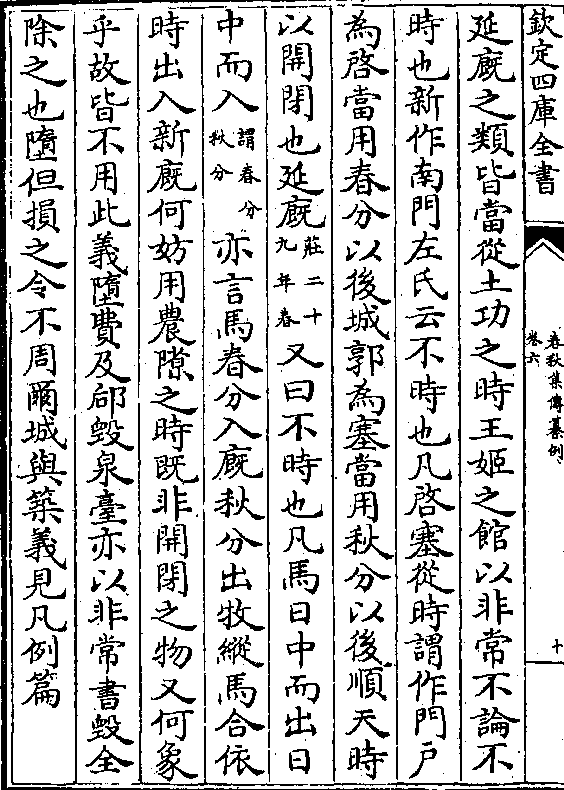 欽定四庫全書
春秋集傳纂例
卷六
十
延廐之類皆當從土功之時王姬之館以非常不論不
時也新作南門左氏云不時也凡啓塞從時謂作門戸
為啓當用春分以後城郭為塞當用秋分以後順天時
以開閉也延廐莊二十九年春又曰不時也凡馬日中而出日
中而入謂春分秋分亦言馬春分入廐秋分出牧縱馬合依
時出入新廐何妨用農隙之時既非開閉之物又何象
乎故皆不用此義墮費及郈毁泉臺亦以非常書毁全
除之也墮但損之令不周爾城與築義見凡例篇